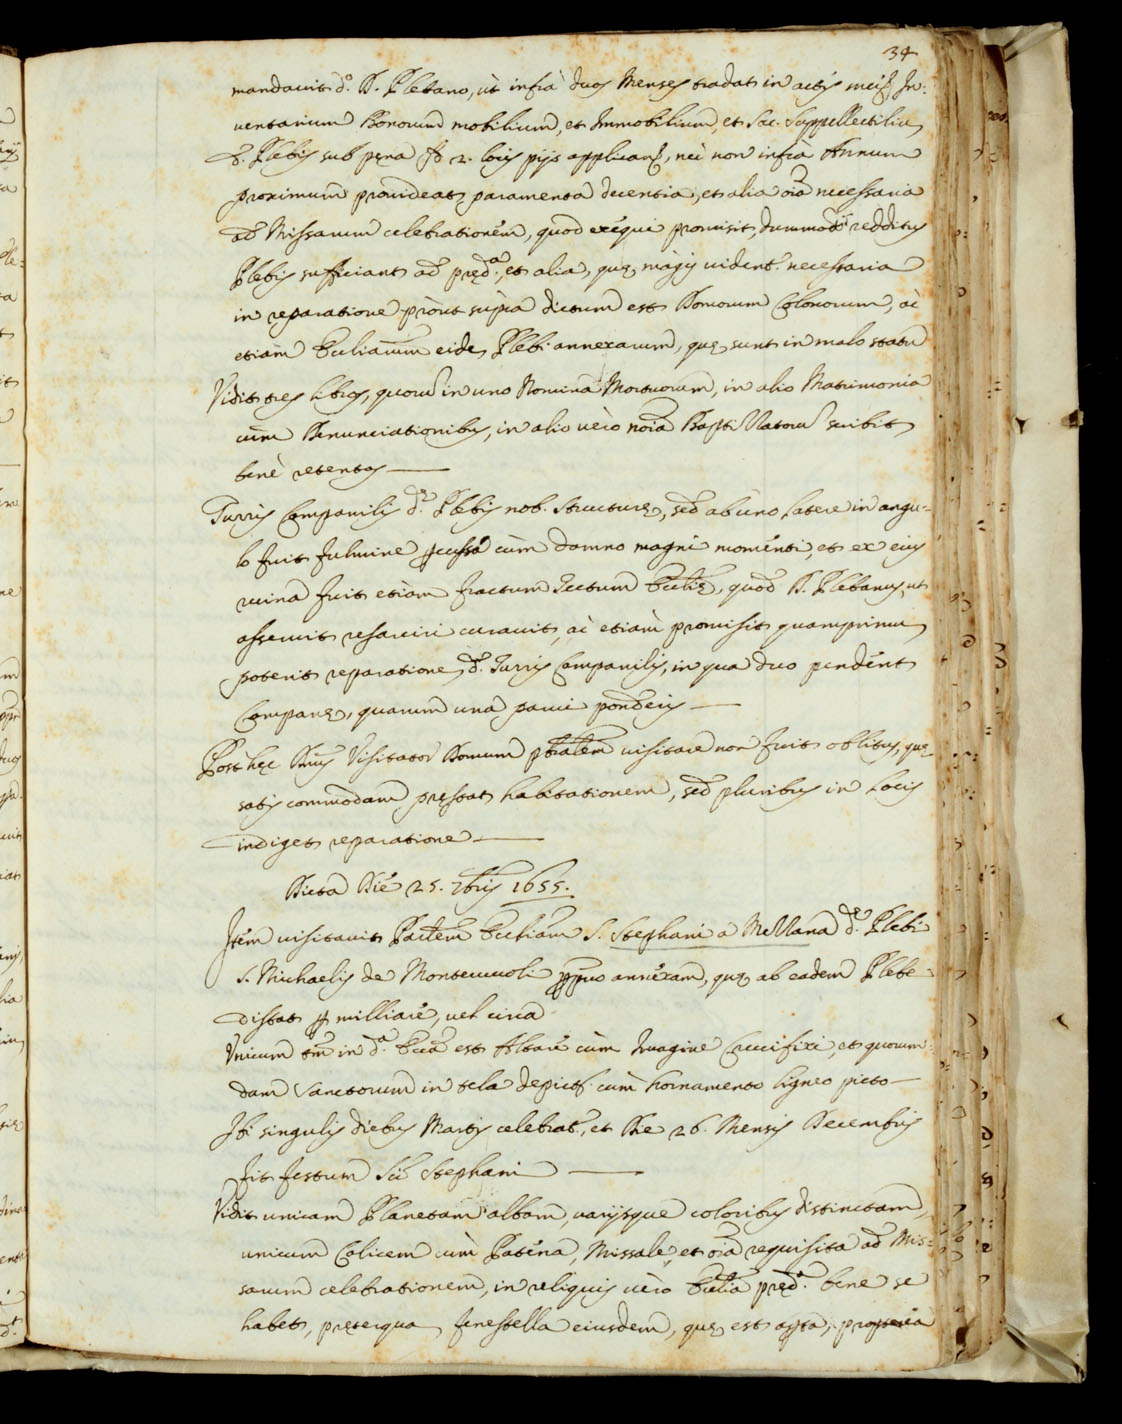 34
mandauit d.º D. Plebano, ut infrà duos Menses tradat in actis meis In-
uentarium Bonorum mobilium, et Immobilium, et Sac. Suppellectiliu
d. Plebis sub pęna 2. locis pijs applicand, nec non infrà Annum
proximum prouideat paramenta decentia, et alia oia necessaria
ad Missarum celebrationem, quod exéqui promisit, dummodo redditus
Plebis sufficiant ad pręd.ª, et alia, quę màgis uident. necessaria
in reparatione pròut supra dictum est Domorum Colonorum, ac
etiàm Eccliarum eidē Plebi annexarum, quę sunt in malo statu
Vidit tres libros, quorū in uno Nomina Mortuorum, in alio Matrimonia
cùm Denunciationibus, in alio uèro noia Baptizatorū scribit
benè retentos
Turris Campanilis d.ę Plebis nob. structurę, sed ab uno latere in angu-
lo fuit fulmine percussa cùm damno magni moménti, et ex eius
ruina fuit etiàm fractum Tectum Ecclię, quod D. Plebanus, ut
asseruit resarciri curauit, ac etiàm promisit quamprimum
poterit reparatione d. Turris Campanilis, in qua duo pendént
Campanę, quarum una parui ponderis
Post hęc Visitator Domum visitare non fuit oblitus, quę
satis commodam pręstat habitationem, sed pluribus in locis
indiget reparatione
Dicta Dié 25. 7bris 1655.
Itém uisitauit Ecclam S. Stephani à Mellana d.ę Plebi
S. Michaelis de Montecucoli annéxam, quę ab eadem Plebe
distat p milliarè, uel circa
Vnicum tm in d.ª Eccla est Altarè cùm Imagine Crucifixi, et quorum-
dam Sanctorum in tela depict. cùm hornamento ligneo picto
Ibi singulis diebus Martis celebrat.r, et Die 26. Mensis Decembris
fit festum Sti Stephani
Vidit unicam Planetam albam, uarijsque coloribus distinctam,
unicum Calicem cùm Paténa, Missale, et oia requisita ad Mis-
sarum celebrationem, in reliquis uèro Ecclia pręd.ª bene se
habet, pręterqua fenestella eiusdem, quę est apta, proptereà